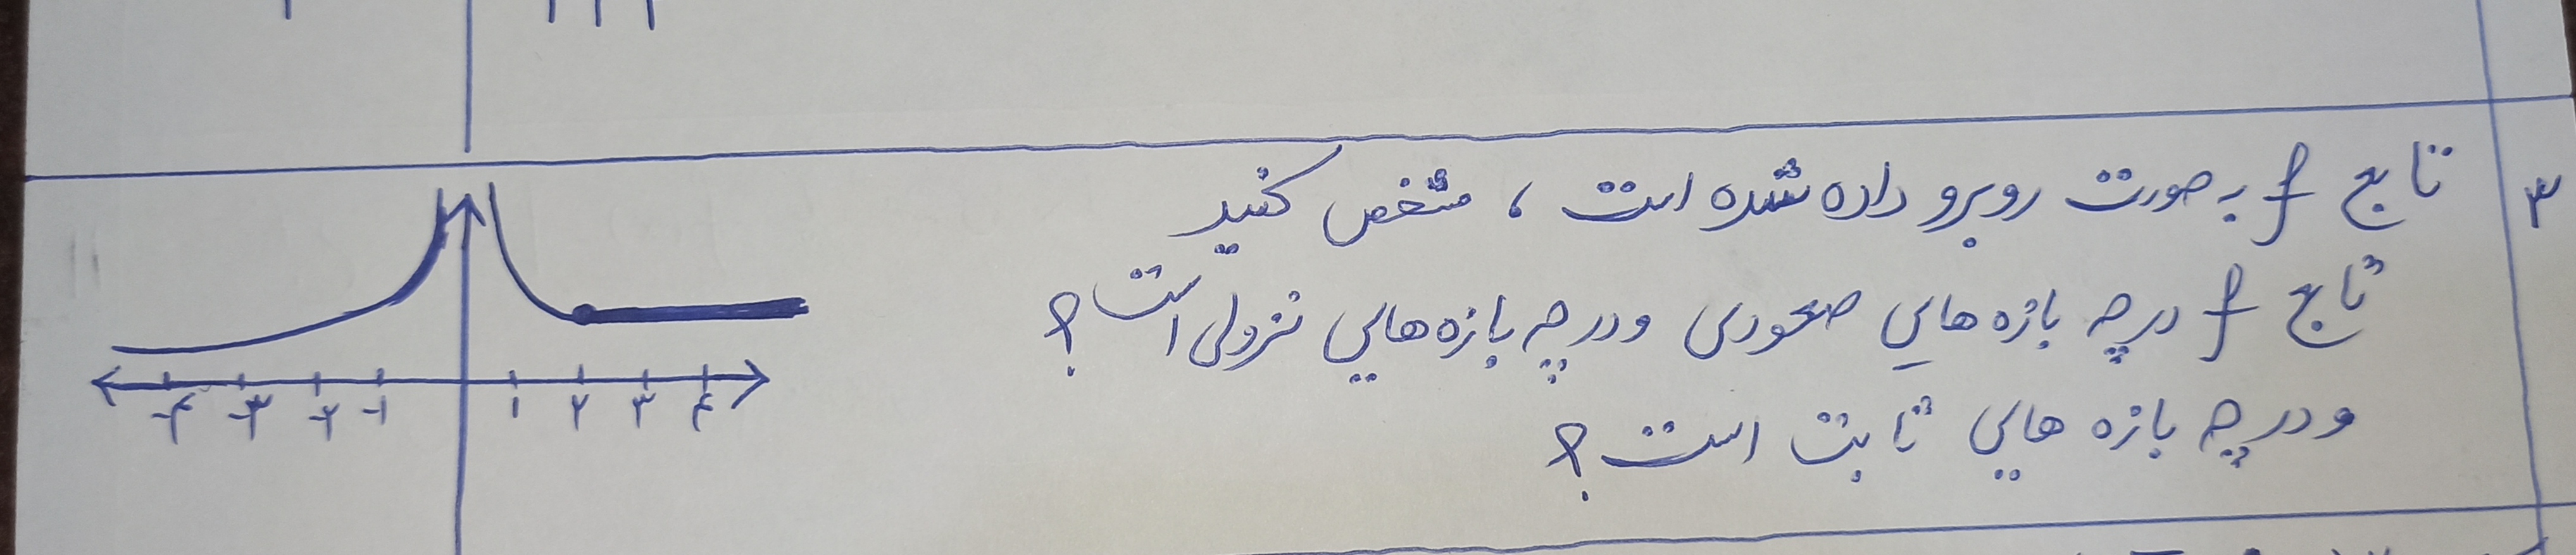 ۳
تابع f به صورت روبرو داده شده است ، مشخص کنید
تابع f در چه بازه هایی صعودی و در چه بازه هایی نزولی است ؟
و در چه بازه هایی ثابت است ؟
-۴ -۳ -۲ -۱ ۱ ۲ ۳ ۴